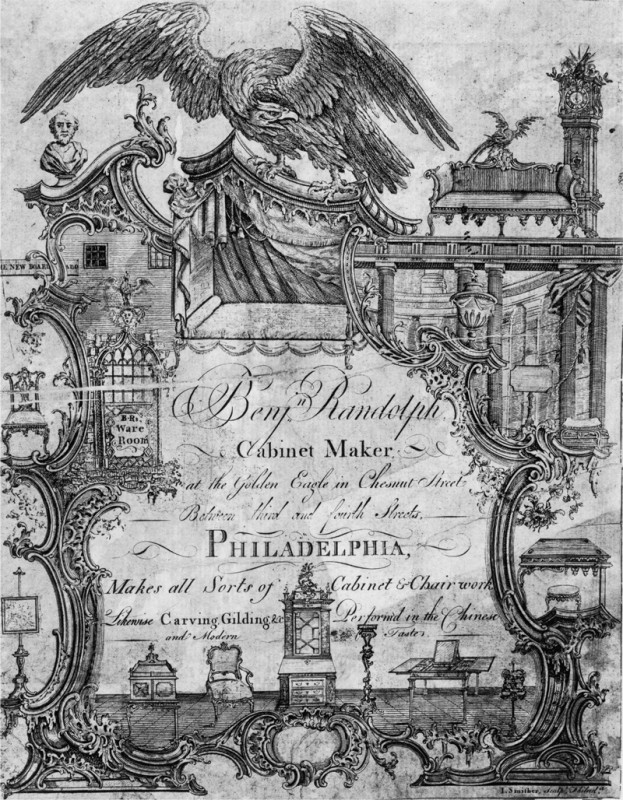 THE NEW BOARD YARD
B.R.
Ware
Room
Benj.n Randolph
Cabinet Maker,
at the Golden Eagle in Chesnut Street
Between third and fourth Streets,
PHILADELPHIA,
Makes all Sorts of Cabinet & Chairwork
Likewise Carving, Gilding &c Perform'd in the Chinese
and Modern Taste.
I. Smither, Sculp.